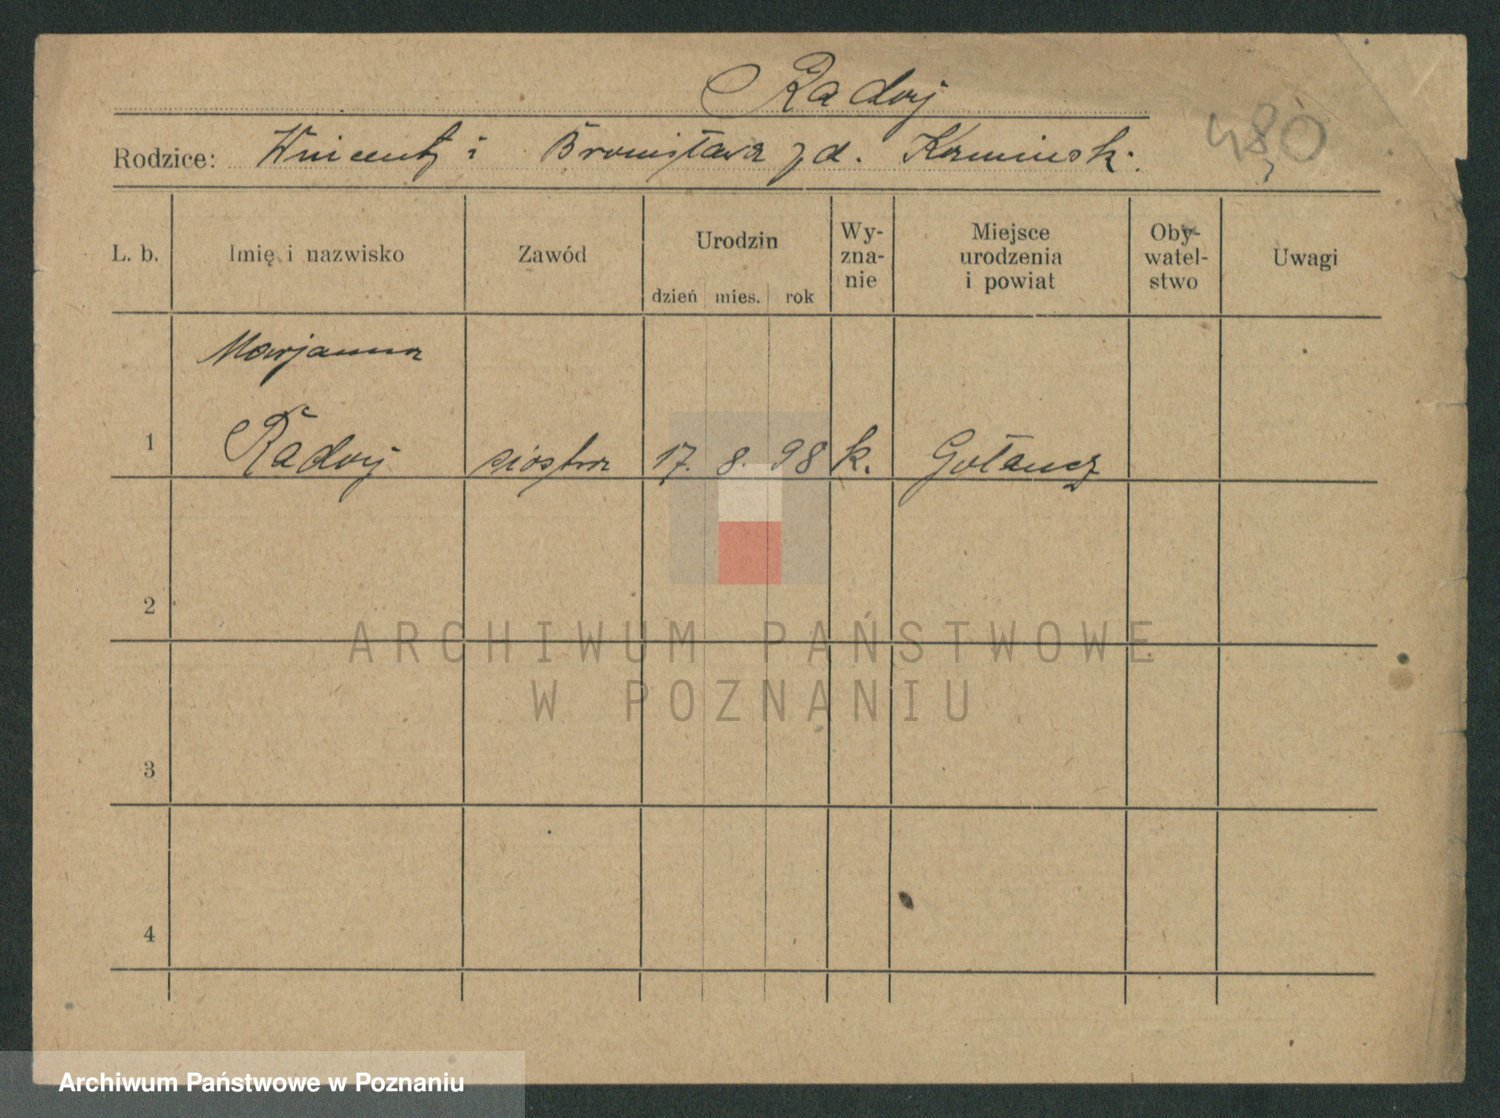 Radoj
480
Rodzice: Wincenty i Bronisława z d. Kamińsk.
L. b. Imię i nazwisko Zawód Urodzin dzień mies. rok Wy-zna-nie Miejsce urodzenia i powiat Oby-watel-stwo Uwagi
Marjanna
1 Radoj siostra 17. 8. 98 k. Gołancz
2
ARCHIWUM PAŃSTWOWE
W POZNANIU
3
4
Archiwum Państwowe w Poznaniu